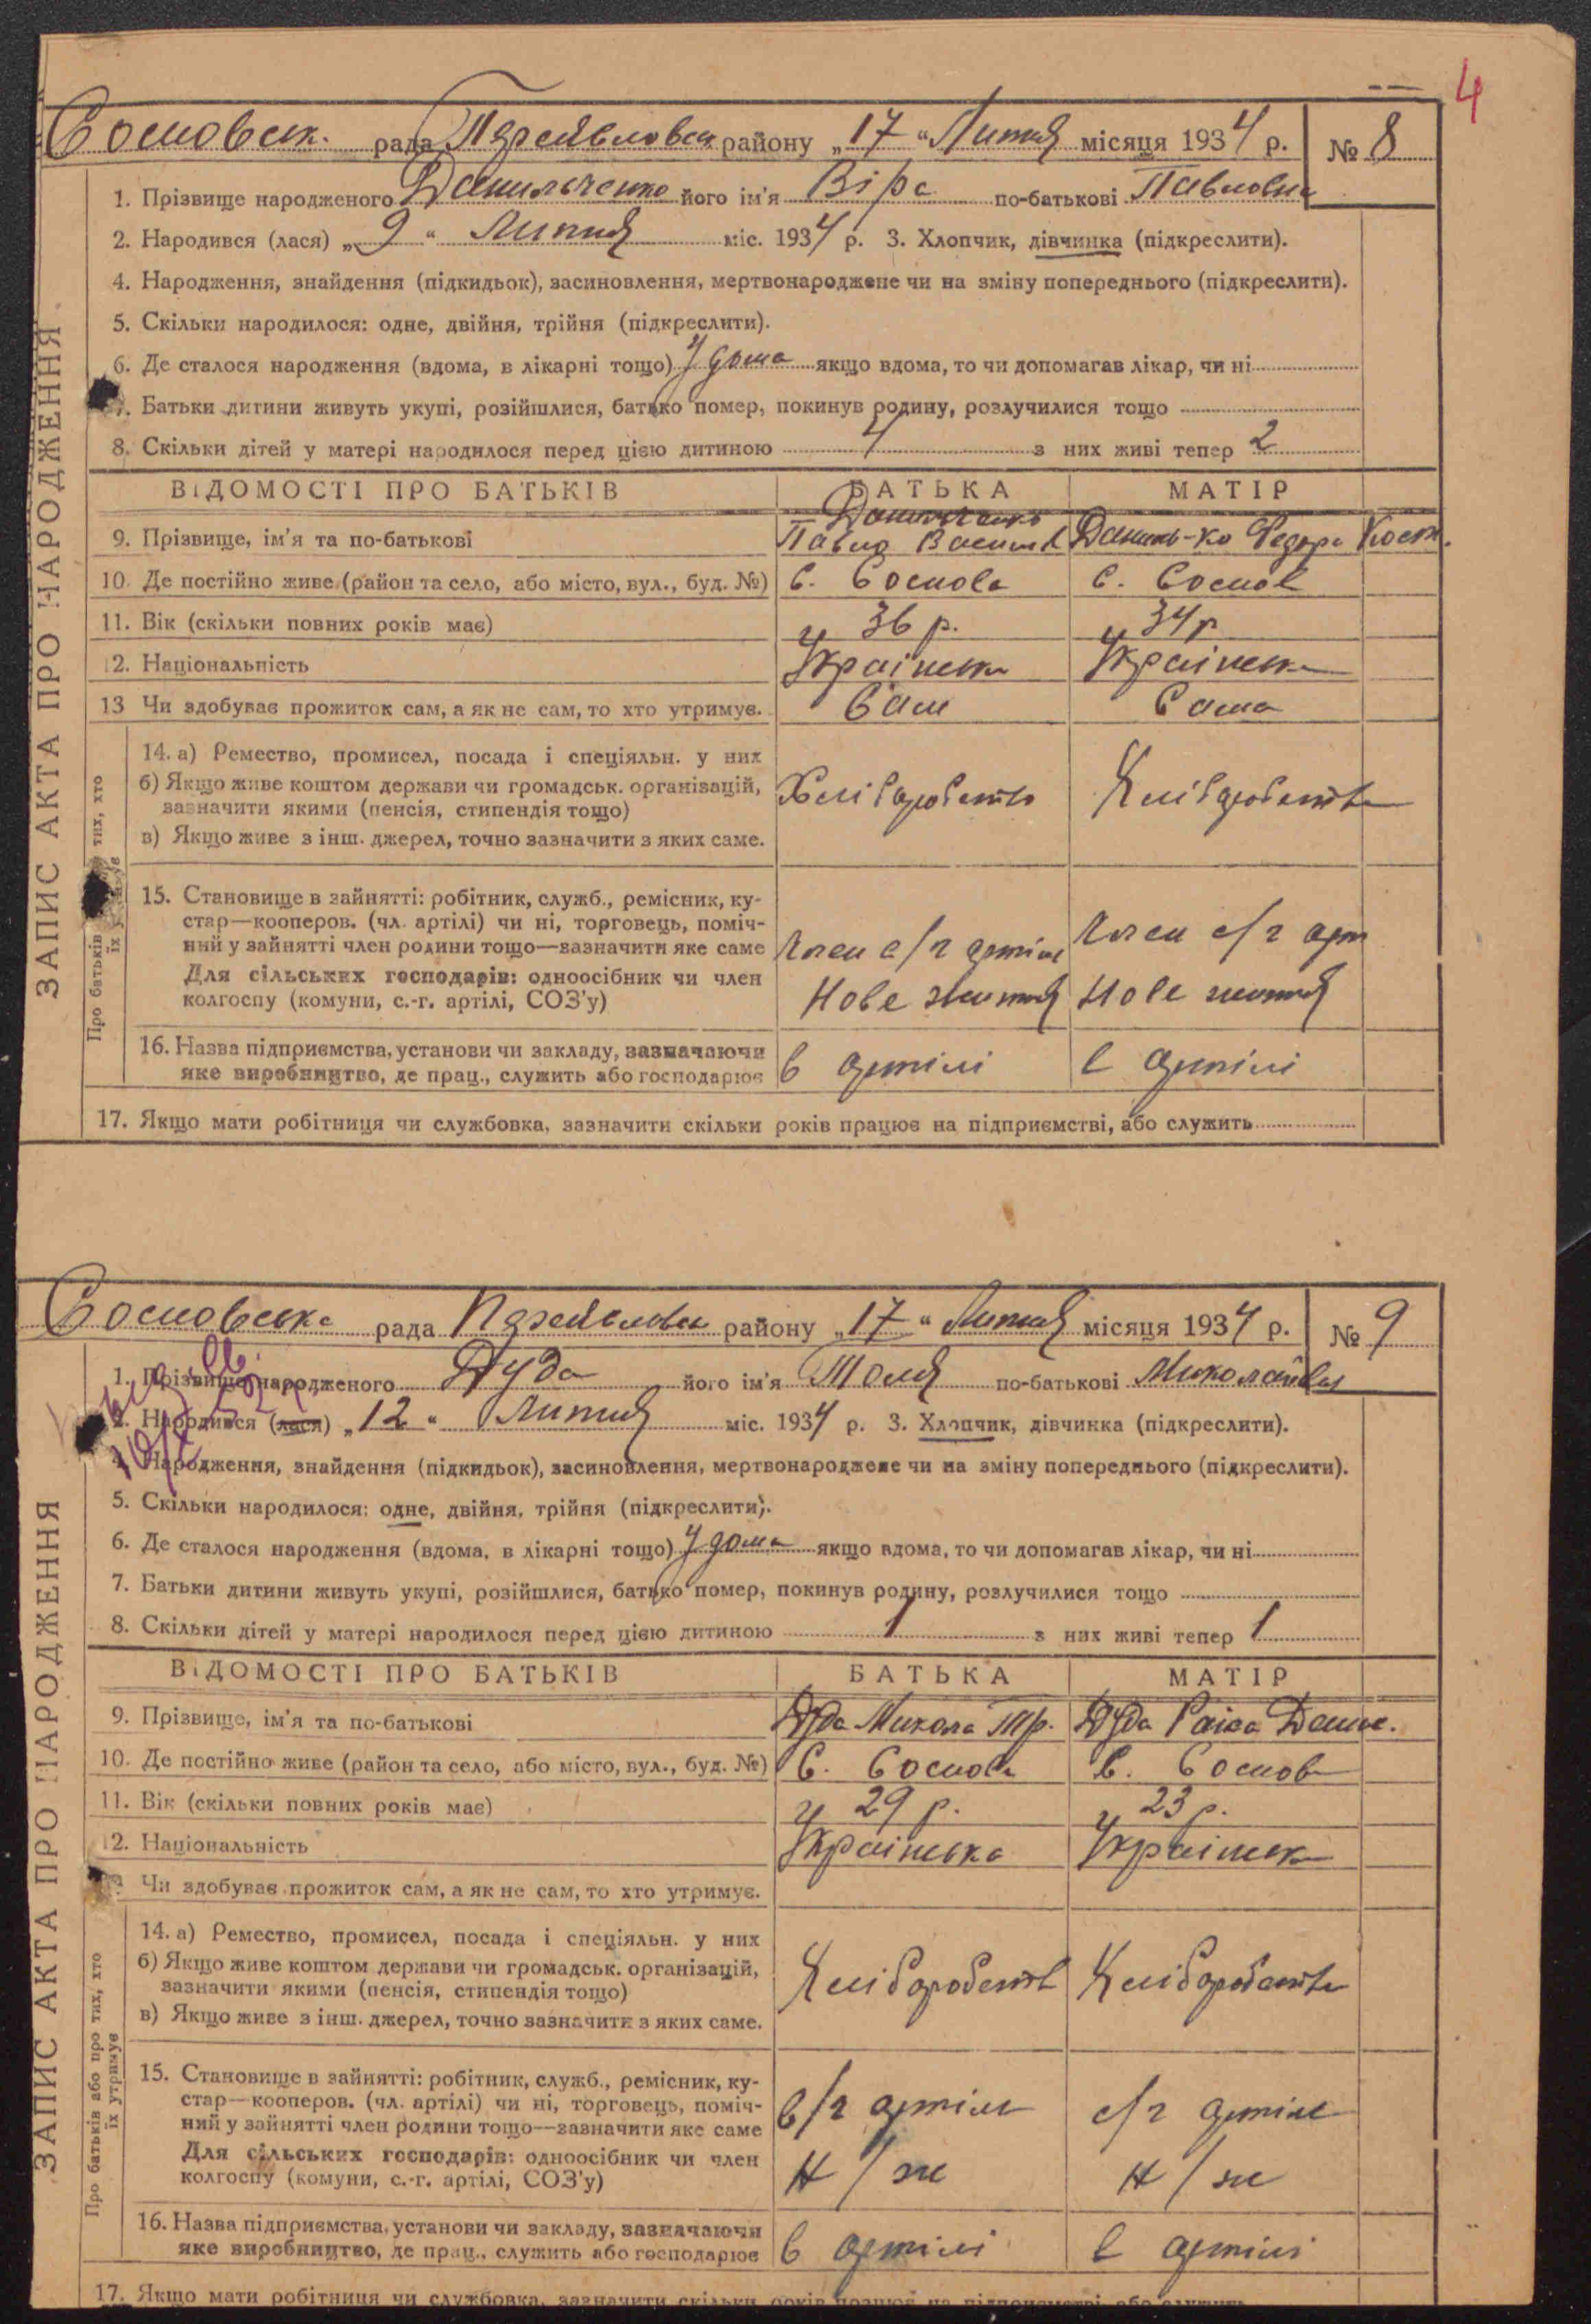 4
Сосновськ. рада Переяславськ району „17“ Липня місяця 1934 р. № 8
1. Прізвище народженого Данильченко його ім'я Віра по-батькові Павловна
2. Народився (лася) „9“ Липня міс. 1934 р. 3. Хлопчик, дівчинка (підкреслити).
4. Народження, знайдення (підкидьок), засиновлення, мертвонароджене чи на зміну попереднього (підкреслити).
5. Скільки народилося: одне, двійня, трійня (підкреслити).
6. Де сталося народження (вдома, в лікарні тощо) У дома якщо вдома, то чи допомагав лікар, чи ні
7. Батьки дитини живуть укупі, розійшлися, батько помер, покинув родину, розлучилися тощо
8. Скільки дітей у матері народилося перед цією дитиною 4 з них живі тепер 2
ВІДОМОСТІ ПРО БАТЬКІВ БАТЬКА МАТІР
9. Прізвище, ім'я та по-батькові Данильченко Павло Васильов Даниль-ко Федора Кост.
10. Де постійно живе (район та село, або місто, вул., буд. №) С. Соснова С. Соснов
11. Вік (скільки повних років має) 36 р. 34 р
12. Національність Українська Українська
13 Чи здобуває прожиток сам, а як не сам, то хто утримує. Сам Сама
14. а) Ремество, промисел, посада і спеціяльн. у них
б) Якщо живе коштом держави чи громадськ. організацій,
зазначити якими (пенсія, стипендія тощо) Хліборобство Хліборобство
в) Якщо живе з інш. джерел, точно зазначити з яких саме.
15. Становище в зайнятті: робітник, служб., ремісник, ку-
стар—кооперов. (чл. артілі) чи ні, торговець, поміч-
ний у зайнятті член родини тощо—зазначити яке саме Член с/г артіли Член с/г арт
Для сільських господарів: одноосібник чи член
колгоспу (комуни, с.-г. артілі, СОЗ'у) Нове життя Нове життя
16. Назва підприємства, установи чи закладу, зазначаючи
яке виробництво, де прац., служить або господарює в артілі в артілі
17. Якщо мати робітниця чи службовка, зазначити скільки років працює на підприємстві, або служить
ЗАПИС АКТА ПРО НАРОДЖЕННЯ
Про батьків тих, хто
їх
Сосновська рада Переяславськ району „17“ Липня місяця 1934 р. № 9
1. Прізвище народженого Дуда його ім'я Толя по-батькові Миколайов
2. Народився (лася) „12“ Липня міс. 1934 р. 3. Хлопчик, дівчинка (підкреслити).
4. Народження, знайдення (підкидьок), засиновлення, мертвонароджене чи на зміну попереднього (підкреслити).
5. Скільки народилося: одне, двійня, трійня (підкреслити).
6. Де сталося народження (вдома, в лікарні тощо) У дома якщо вдома, то чи допомагав лікар, чи ні
7. Батьки дитини живуть укупі, розійшлися, батько помер, покинув родину, розлучилися тощо
8. Скільки дітей у матері народилося перед цією дитиною 1 з них живі тепер 1
ВІДОМОСТІ ПРО БАТЬКІВ БАТЬКА МАТІР
9. Прізвище, ім'я та по-батькові Дуда Микола Тр. Дуда Раіса Данил.
10. Де постійно живе (район та село, або місто, вул., буд. №) С. Соснова С. Соснов
11. Вік (скільки повних років має) 29 р. 23 р.
12. Національність Українська Українськ
Чи здобуває прожиток сам, а як не сам, то хто утримує.
14. а) Ремество, промисел, посада і спеціяльн. у них
б) Якщо живе коштом держави чи громадськ. організацій,
зазначити якими (пенсія, стипендія тощо) Хліборобств Хліборобство
в) Якщо живе з інш. джерел, точно зазначити з яких саме.
15. Становище в зайнятті: робітник, служб., ремісник, ку-
стар—кооперов. (чл. артілі) чи ні, торговець, поміч- с/г артіли с/г артіли
ний у зайнятті член родини тощо—зазначити яке саме
Для сільських господарів: одноосібник чи член
колгоспу (комуни, с.-г. артілі, СОЗ'у) Н/ж Н/ж
16. Назва підприємства, установи чи закладу, зазначаючи
яке виробництво, де прац., служить або господарює в артілі в артілі
17. Якщо мати робітниця чи службовка, зазначити скільки років працює на підприємстві, або служить
ЗАПИС АКТА ПРО НАРОДЖЕННЯ
Про батьків або про тих, хто
їх утримує